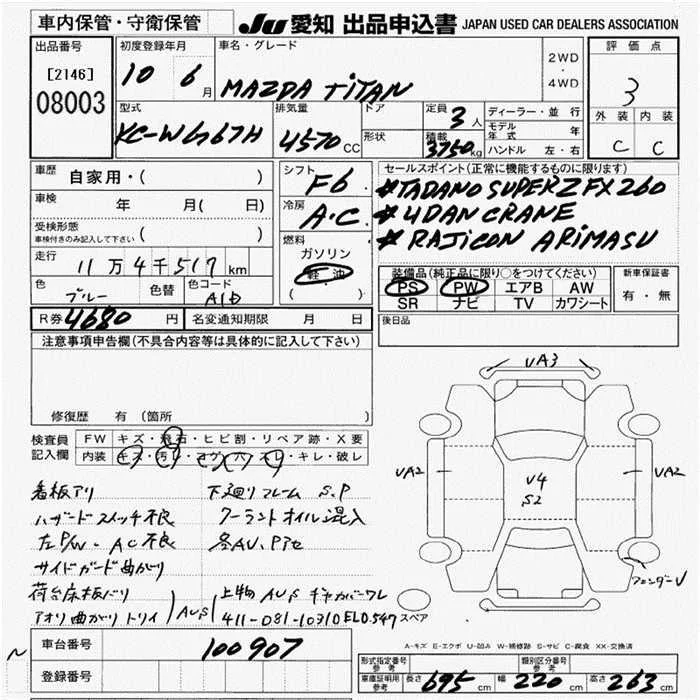 車内保管・守衛保管
JU 愛知 出品申込書 JAPAN USED CAR DEALERS ASSOCIATION
出品番号
[2146]
08003
初度登録年月
10 6月
車名・グレード
MAZDA TITAN
2WD
・
4WD
評価点
3
外装 内装
C C
型式
KC-WG67H
排気量
4570cc
ドア
形状
定員
3人
積載
3750kg
ディーラー・並行
モデル年式 年
ハンドル 左・右
車歴
自家用・( )
車検
年 月( 日)
受検形態
車検付きのみ記入して下さい ( )
走行
11万4千517km
色
ブルー
色替
色コード
シフト
F6
冷房
A.C
燃料
ガソリン
軽・油
( )
セールスポイント(正常に機能するものに限ります)
#TADANO SUPER Z FX260
#4DAN CRANE
#RAJICON ARIMASU
装備品(純正品に限り○をつけてください)
PS PW エアB AW
SR ナビ TV カワシート
新車保証書
有・無
R券 4680円
名変通知期限 月 日
後日品
注意事項申告欄(不具合内容等は具体的に記入して下さい)
修復歴 有 (箇所
検査員
記入欄
FW キズ・飛石・ヒビ割・リペア跡・X要
内装 キズ・汚レ・コゲ・穴・スレ・キレ・破レ
看板アリ
ハザードスイッチ不良
左P/W・AC不良
サイドガード曲がり
荷台床板バリ
アオリ曲がり トリイ
AUS
下廻りフレーム S.P
クーラントオイル混入
各AU、Pセ
上物 AUS ギヤカバーワレ
411-081-10310 EL0.547
UA3
UA2
U4
S2
UA2
フェンダーU
スペア
A-キズ E-エクボ U-凹み W-補修跡 S-サビ C-腐食 XX-交換済
車台番号
100907
登録番号
形式指定番号
参考
類別区分番号
参考
車庫証明用
参考
長さ 695cm 幅 220cm 高さ 263cm